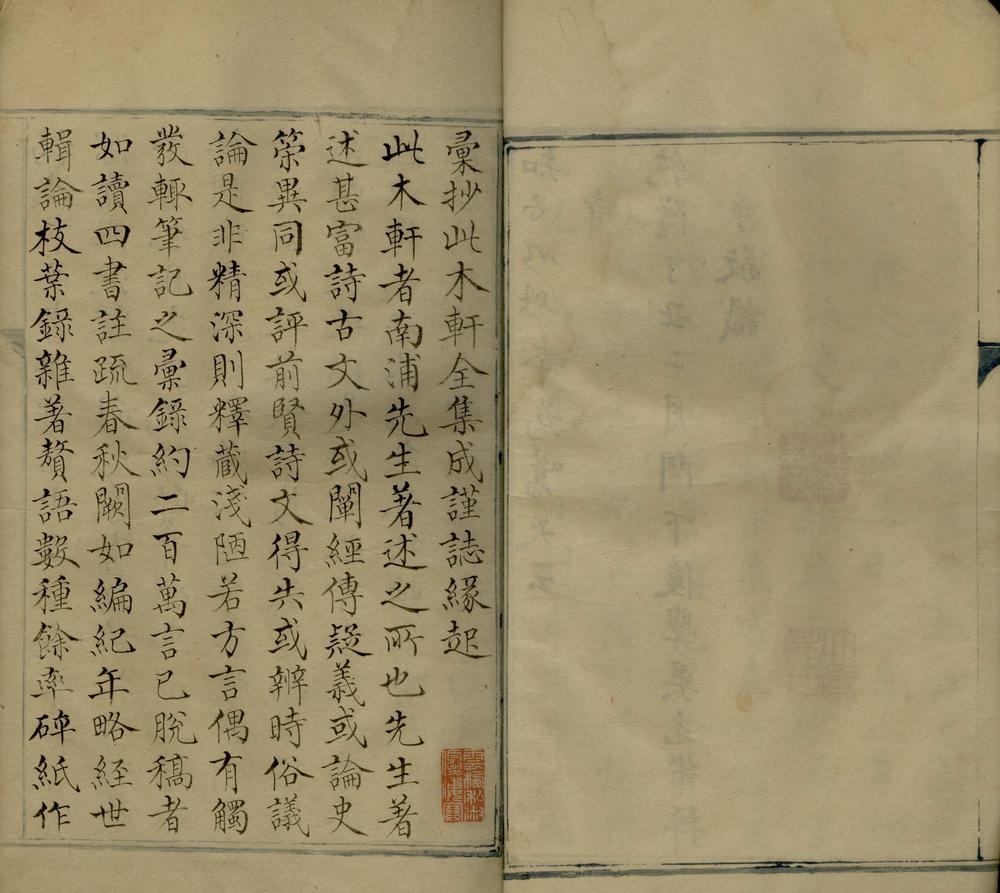 彚抄此木軒全集成謹誌緣起
此木軒者南浦先生著述之所也先生著
述甚富詩古文外或闡經傳疑義或論史
䇿異同或評前賢詩文得失或辨時俗議
論是非精深則釋藏淺陋若方言偶有觸
發輒筆記之彚錄約二百萬言已脫稿者
如讀四書註疏春秋闕如編紀年略經世
輯論枝葉錄雜著贅語數種餘率碎紙作